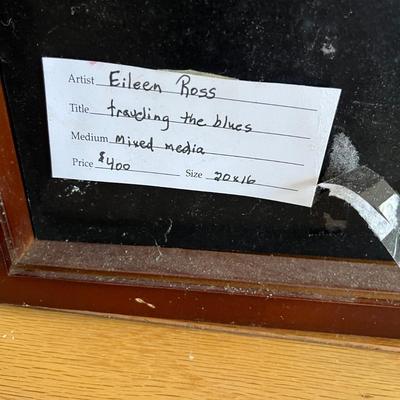 Artist Eileen Ross
Title traveling the blues
Medium mixed media
Price $400 Size 20x16